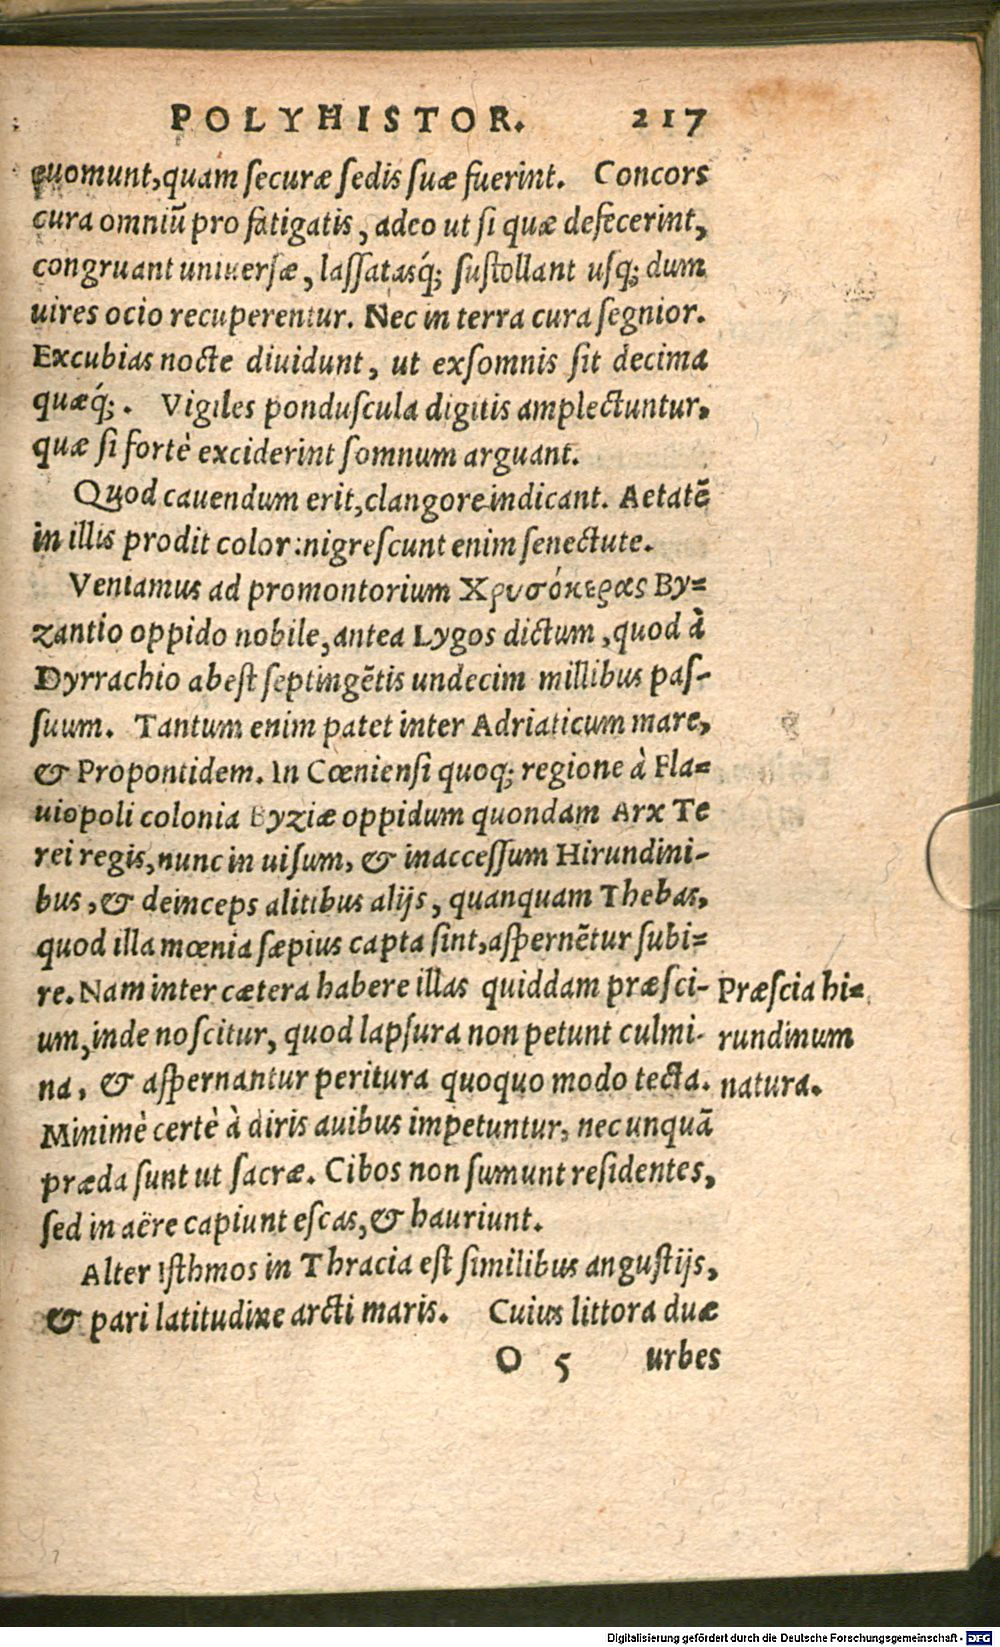 POLYHISTOR. 217
euomunt, quam securæ sedis suæ fuerint. Concors
cura omniū pro fatigatis, adeo ut si quæ defecerint,
congruant uniuersæ, lassatasq́; sustollant usq; dum
uires ocio recuperentur. Nec in terra cura segnior.
Excubias nocte diuidunt, ut exsomnis sit decima
quæq́;. Vigiles ponduscula digitis amplectuntur,
quæ si fortè exciderint somnum arguant.
Quod cauendum erit, clangore indicant. Aetatē
in illis prodit color: nigrescunt enim senectute.
Veniamus ad promontorium Χρυσόκερας By=
zantio oppido nobile, antea Lygos dictum, quod à
Dyrrachio abest septingētis undecim millibus pas-
suum. Tantum enim patet inter Adriaticum mare,
& Propontidem. In Cœniensi quoq; regione à Fla=
uiopoli colonia Byziæ oppidum quondam Arx Te
rei regis, nunc in uisum, & inaccessum Hirundini-
bus, & deinceps alitibus alijs, quanquam Thebas,
quod illa mœnia sæpius capta sint, aspernētur subi=
re. Nam inter cætera habere illas quiddam præsci-
um, inde noscitur, quod lapsura non petunt culmi-
na, & aspernantur peritura quoquo modo tecta.
Minimè certè à diris auibus impetuntur, nec unquā
præda sunt ut sacræ. Cibos non sumunt residentes,
sed in aëre capiunt escas, & hauriunt.
Alter Isthmos in Thracia est similibus angustijs,
& pari latitudine arcti maris. Cuius littora duæ
O 5 urbes
Præscia hi=
rundinum
natura.
Digitalisierung gefördert durch die Deutsche Forschungsgemeinschaft - DFG